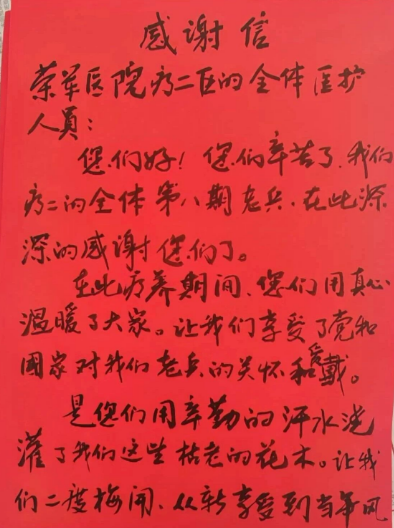 感谢信
荣军医院疗二区的全体医护
人員：
您们好！您们辛苦了，我们
疗二的全体第八期老兵，在此深
深的感谢您们了。
在此疗养期间，您们用真心
温暖了大家。让我们享受了党和
國家对我们老兵的关怀和爱戴。
是您们用辛勤的汗水浇
灌了我们这些枯老的花木。让我
们二度梅开，从新享受到当年风